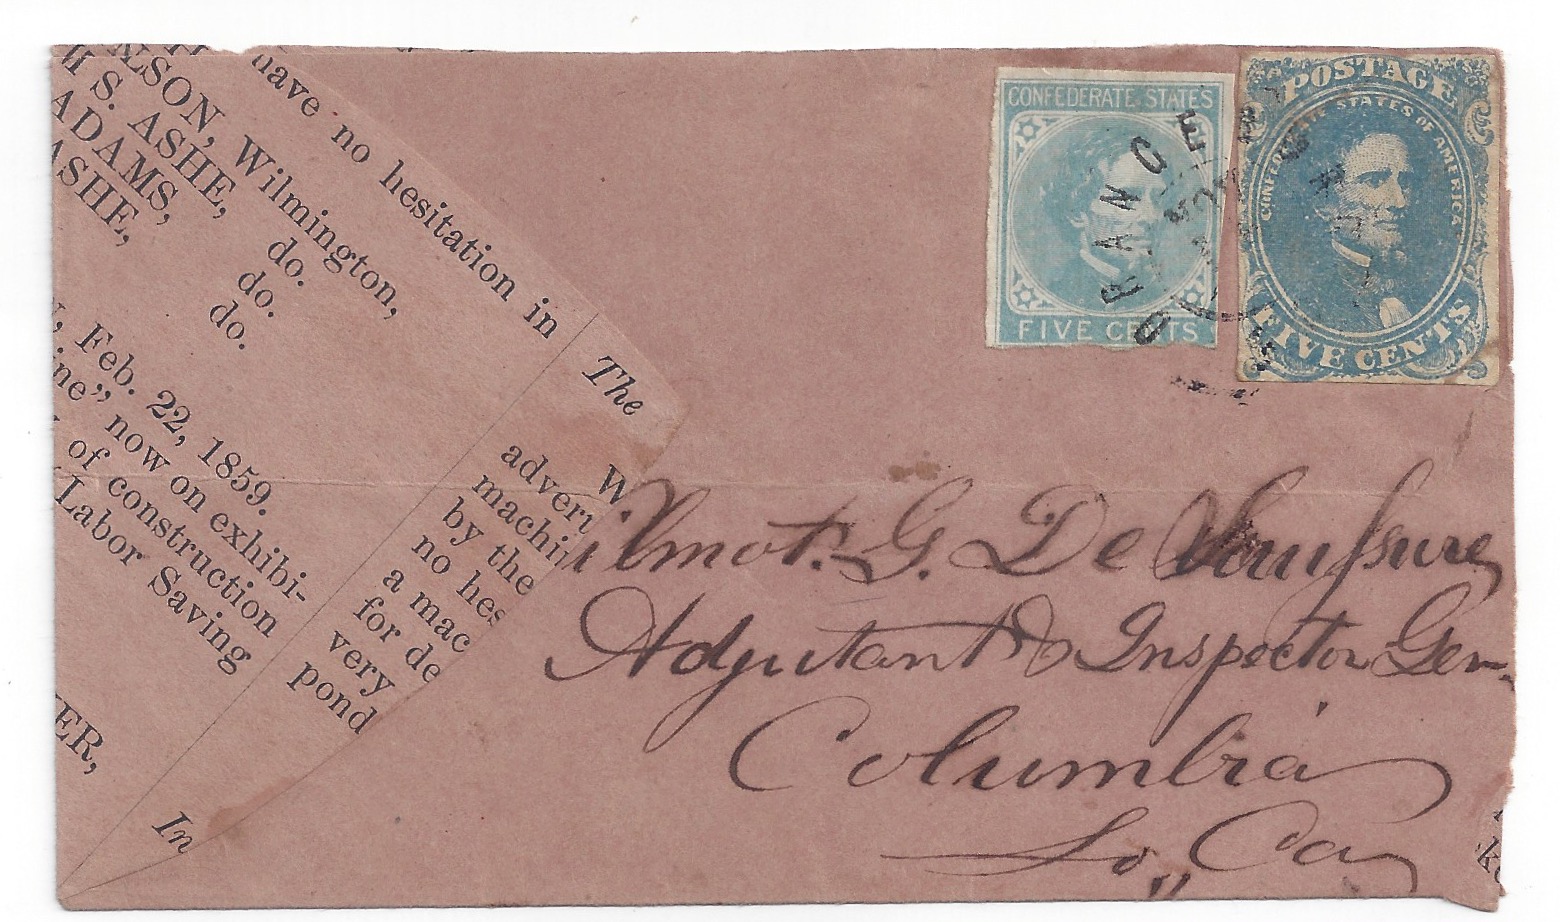 have no hesitation in
NLSON, Wilmington,
S. ASHE, do.
ADAMS, do.
ASHE, do.
Feb. 22, 1859.
ine" now on exhibi-
of construction
Labor Saving
ER,
In
The
W
advert
machin
by the
no hes
a mac
for de
very
pond
CONFEDERATE STATES
FIVE CENTS
POSTAGE
CONFEDERATE STATES OF AMERICA
FIVE CENTS
ORANGE
Wilmot. G. De Saussure
Adjutant & Inspector Gen
Columbia
So, Ca